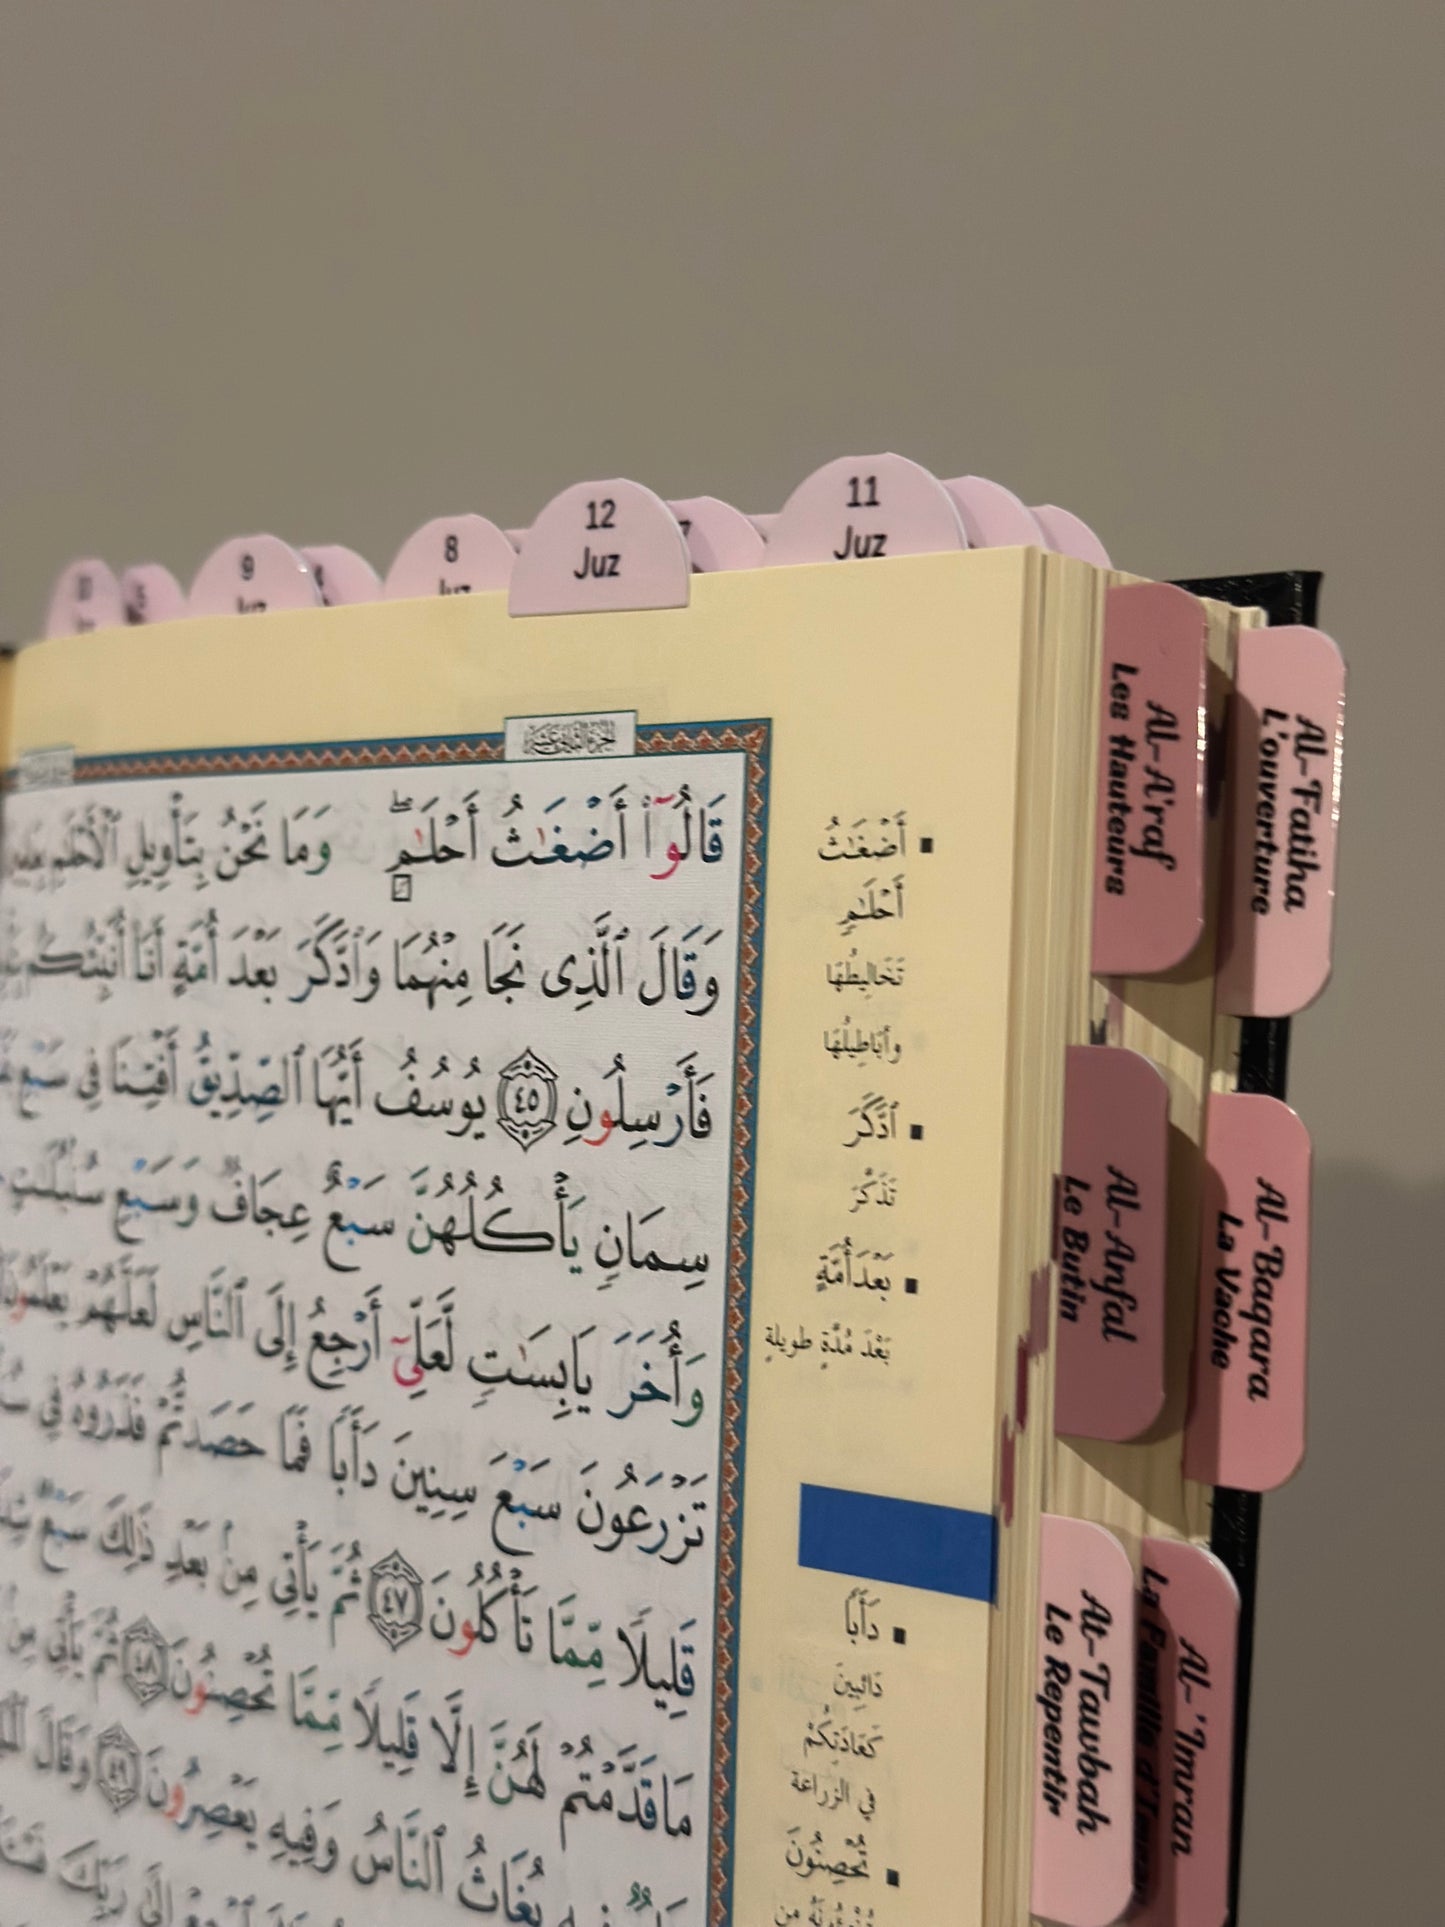 12
Juz
11
Juz
9
8
الجزء الثاني عشر
قَالُوٓا۟ أَضْغَـٰثُ أَحْلَـٰمٍ ۖ وَمَا نَحْنُ بِتَأْوِيلِ ٱلْأَحْلَـٰمِ
وَقَالَ ٱلَّذِى نَجَا مِنْهُمَا وَٱدَّكَرَ بَعْدَ أُمَّةٍ أَنَا۠ أُنَبِّئُكُم
فَأَرْسِلُونِ ٤٥ يُوسُفُ أَيُّهَا ٱلصِّدِّيقُ أَفْتِنَا فِى سَبْعِ
سِمَانٍ يَأْكُلُهُنَّ سَبْعٌ عِجَافٌ وَسَبْعِ سُنۢبُلَـٰتٍ
وَأُخَرَ يَابِسَـٰتٍ لَّعَلِّىٓ أَرْجِعُ إِلَى ٱلنَّاسِ لَعَلَّهُمْ يَعْلَمُونَ
تَزْرَعُونَ سَبْعَ سِنِينَ دَأَبًا فَمَا حَصَدتُّمْ فَذَرُوهُ فِى
قَلِيلًا مِّمَّا تَأْكُلُونَ ٤٧ ثُمَّ يَأْتِى مِنۢ بَعْدِ ذَٰلِكَ سَبْعٌ
مَا قَدَّمْتُمْ لَهُنَّ إِلَّا قَلِيلًا مِّمَّا تُحْصِنُونَ ٤٨ ثُمَّ يَأْتِى مِنۢ
يُغَاثُ ٱلنَّاسُ وَفِيهِ يَعْصِرُونَ ٤٩ وَقَالَ
أَضْغَـٰثُ
أَحْلَـٰمٍ
تَخَالِيطُهَا
وأَبَاطِيلُهَا
ٱدَّكَرَ
تَذَكَّرَ
بَعْدَ أُمَّةٍ
بَعْدَ مُدَّةٍ طويلةٍ
دَأَبًا
دَائِبِينَ
كَعَادَتِكُمْ
في الزراعة
تُحْصِنُونَ
Al-A'raf
Les Hauteurs
Al-Fatiha
L'ouverture
Al-Anfal
Le Butin
Al-Baqara
La Vache
At-Tawbah
Le Repentir
Al-'Imran
La Famille d'Imran